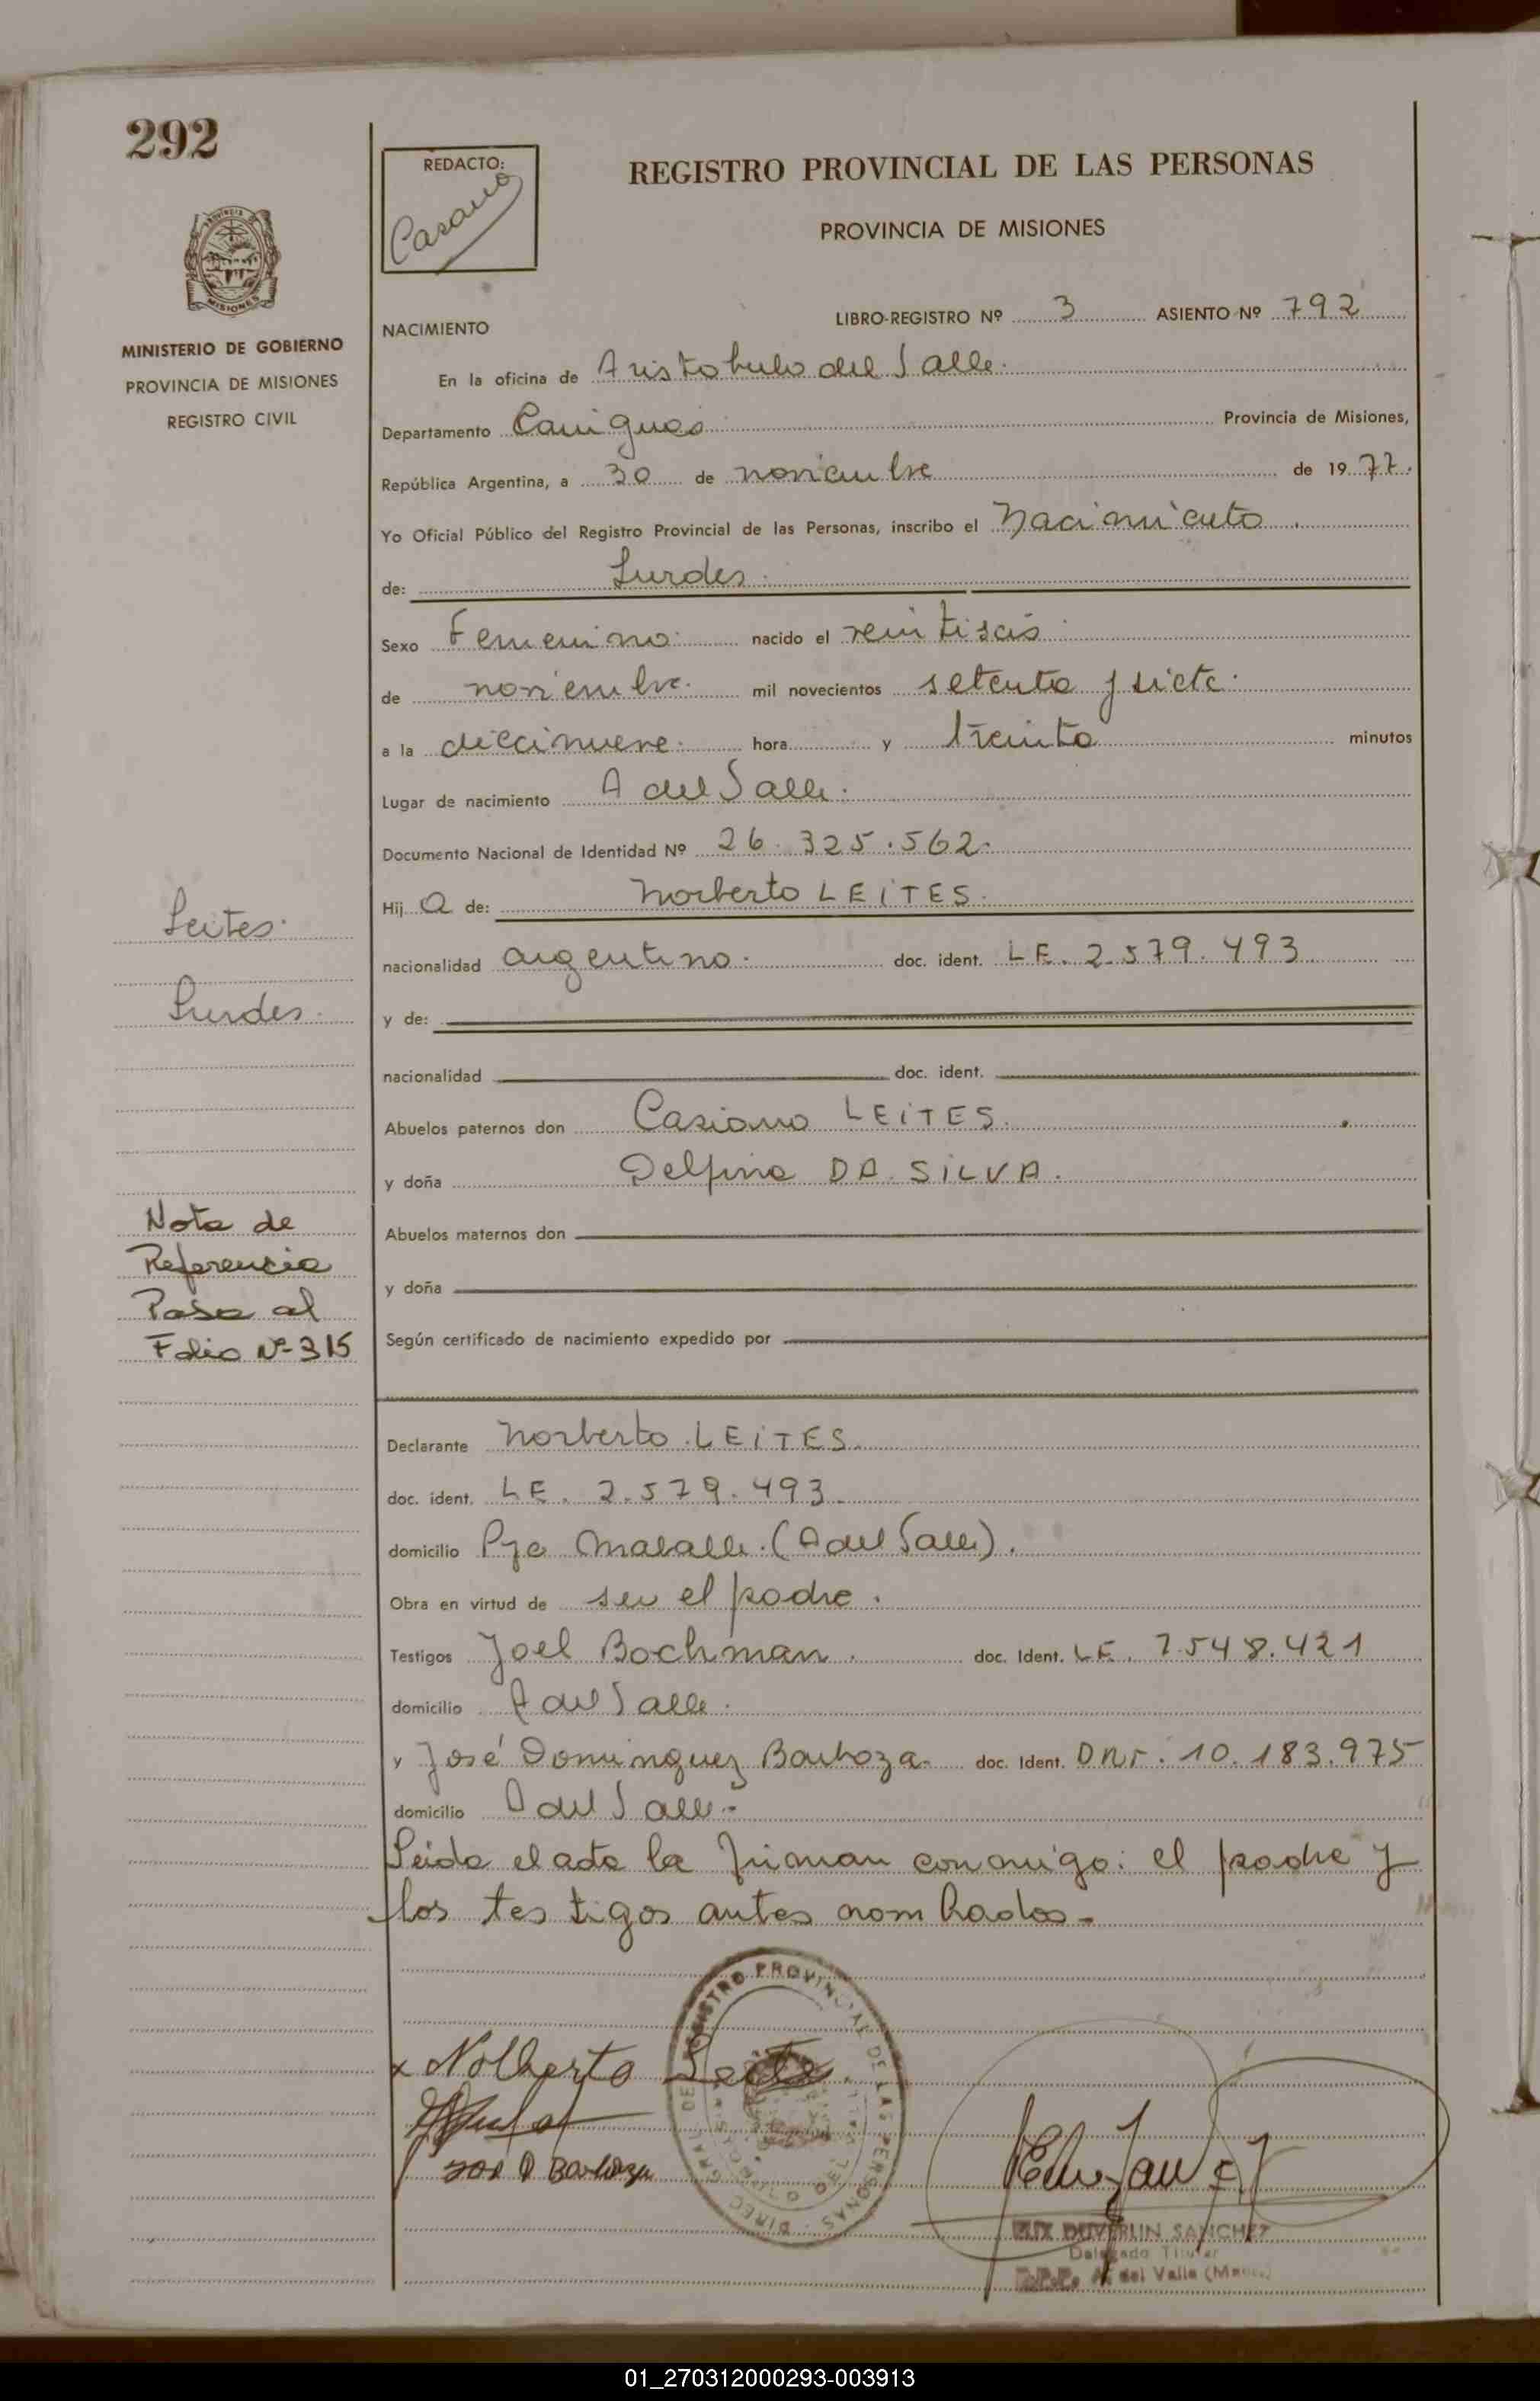 292
REDACTO:
Casano
REGISTRO PROVINCIAL DE LAS PERSONAS
PROVINCIA DE MISIONES
MISIONES
MINISTERIO DE GOBIERNO
PROVINCIA DE MISIONES
REGISTRO CIVIL
NACIMIENTO
LIBRO-REGISTRO Nº 3 ASIENTO Nº 792
En la oficina de Aristobulo del Valle.
Departamento Cainguas Provincia de Misiones,
República Argentina, a 30 de noviembre de 1977.
Yo Oficial Público del Registro Provincial de las Personas, inscribo el Nacimiento.
de: Lurdes.
Sexo Femenino. nacido el veintiseis.
de noviembre. mil novecientos setenta y siete.
a la diecinueve. hora y treinta minutos
Lugar de nacimiento A del Valle.
Documento Nacional de Identidad Nº 26.325.562.
Hij a de: Norberto LEITES.
nacionalidad argentino. doc. ident. LE. 2.579.493
y de:
nacionalidad doc. ident.
Abuelos paternos don Casiano LEITES.
y doña Delfina DA SILVA.
Abuelos maternos don
y doña
Según certificado de nacimiento expedido por
Leites.
Lurdes.
Nota de
Referencia
Pasa al
Folio Nº 315
Declarante Norberto LEITES.
doc. ident. LE. 2.579.493.
domicilio (A del Valle).
Obra en virtud de ser el padre.
Testigos Joel Bochman. doc. Ident. LE. 7.548.421
domicilio A del Valle.
y José Dominguez Barboza. doc. Ident. DNI. 10.183.975
domicilio A del Valle.-
Leida el acta la firman conmigo: el padre y
los testigos antes nombrados.-
x Nolberto Leite
REGISTRO PROVINCIAL DE LAS PERSONAS
DUVERLIN SANCHEZ
Delegado Titular
del Valle
01_270312000293-003913